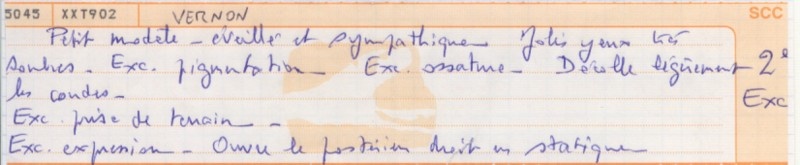 5045 XXT902 VERNON SCC
Petit modèle - éveillé et sympathique Jolis yeux très
sombres - Exc. pigmentation Exc. ossature - Décolle légèrement 2e
les coudes - Exc
Exc. prise de terrain -
Exc. expression - Ouvre le postérieur droit en statique